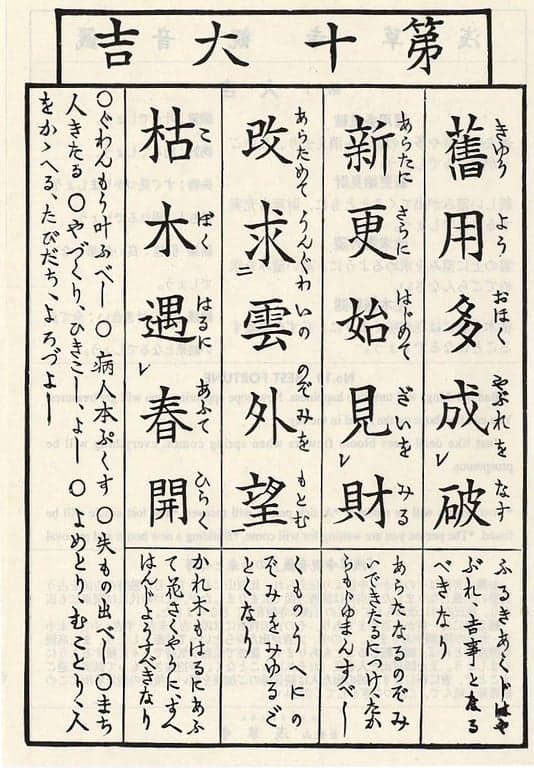 第十大吉
きゆう よう おほく やぶれを なす
舊用多成レ破
ふるきあくじはや
ぶれ吉事と成る
べきなり
あらたに さらに はじめて ざいを みる
新更始見レ財
あらたなるのぞみ
いできたるにつけたか
らもじゆまんすべし
あらためて うんぐわ いの のぞみを もとむ
改求二雲外望一
くものうへにの
ぞみをみゆるご
とくなり
こ ぼく はるに あふて ひらく
枯木遇レ春開
かれ木もはるにあふ
て花さくやうに、すへ
はんじようすべきなり
〇ぐわんもう叶ふべし〇病人本ぷくす〇失もの出べし〇まち
人きたる〇やづくり、ひきこし、よし〇よめとり、むことり、人
をかゝへる、たびだち、よろづよし